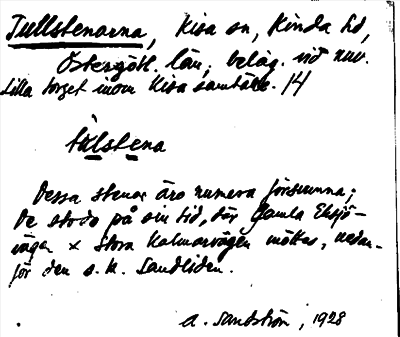 Tullstenarna, Kisa sn, Kinda hd,
Östergötl. län; beläg. vid nuv.
Lilla torget inom Kisa samhälle. 14
tulstena
Dessa stenar äro numera försvunna;
De stodo på sin tid, där Gamla Eksjö-
vägen x Stora Kalmarvägen möttes, nedan-
för den s. k. Sandliden.
A. Sandström, 1928